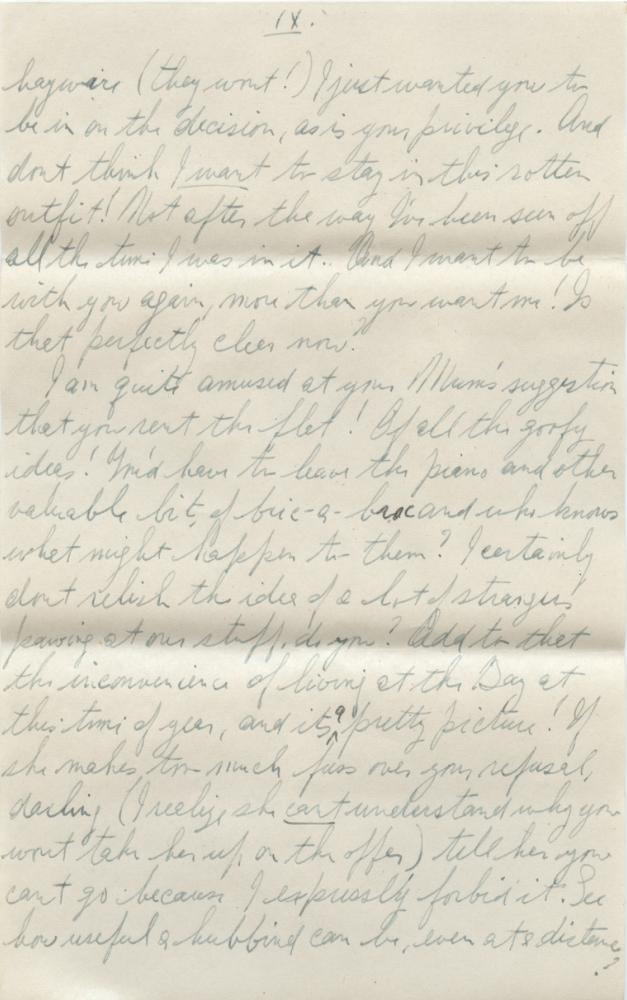 IX.
haywire (they wont!) I just wanted you to
be in on the decision, as is your privilege. And
dont think I want to stay in this rotten
outfit! Not after the way I've been seen off
all the time I was in it. And I want to be
with you again, more than you want me! Is
that perfectly clear now?
I am quite amused at your Mum's suggestion
that you rent the flat! Of all the goofy
ideas! You'd have to leave the piano and other
valuable bits of bric-a-brac and who knows
what might happen to them? I certainly
dont relish the idea of a lot of strangers
pawing at our stuff, do you? Add to that
the inconvenience of living at the Bay at
this time of year, and its a pretty picture! If
she makes too much fuss over your refusal,
darling (I realize she cant understand why you
wont take her up on the offer) tell her you
cant go because I expressly forbid it. See
how useful a hubbind can be, even at a distance?